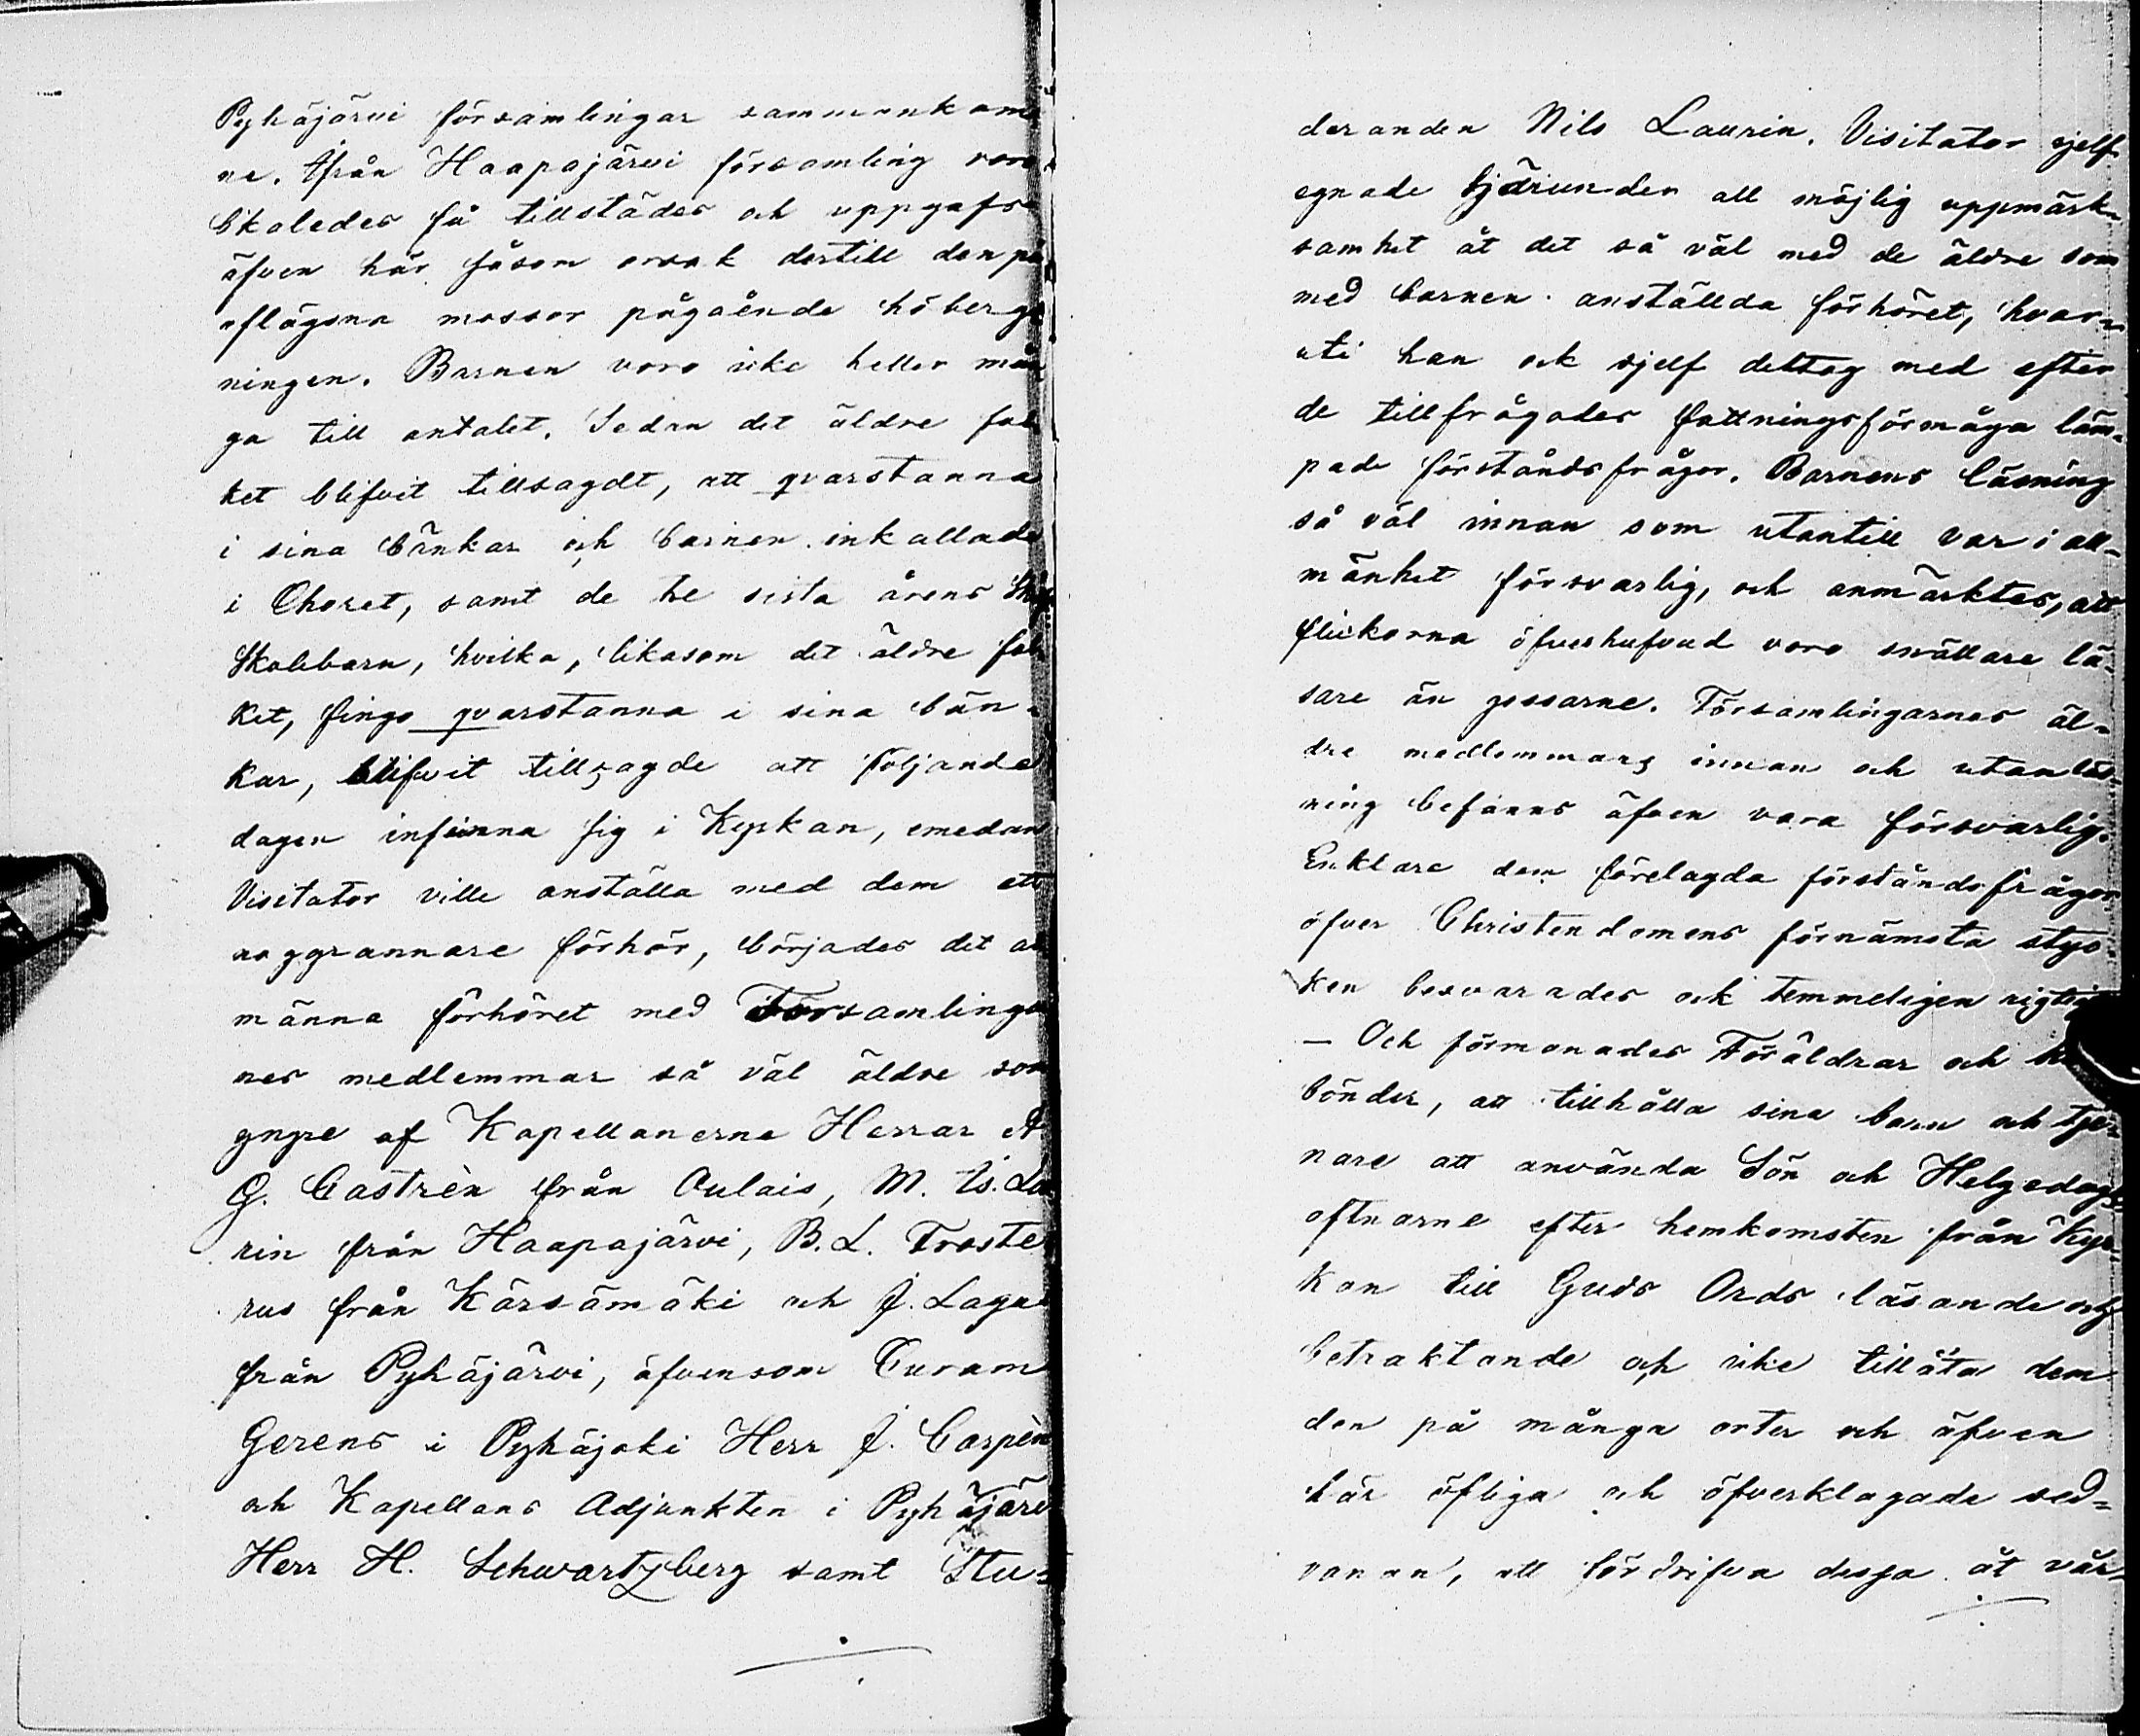 Pyhäjärvi församlingar sammankom
ne. Ifrån Haapajärvi församling voro
likaledes få tillstädes och uppgafs
äfven här såsom orsak dertill den på
aflägsna mossor pågående höberg
ningen. Barnen voro icke heller mån
ga till antalet. Sedan det äldre fol
ket blifvit tillsagdt, att qvarstanna
i sina bänkar och barnen inkallade
i Choret, samt de tre sista årens
Skolebarn, hvilka, likasom det äldre fol
ket, fingo qvarstanna i sina bän-
kar, blifvit tillsagde att följande
dagen infinna sig i Kyrkan, emedan
Visitator ville anställa med dem ett
noggrannare förhör, börjades det al
männa förhöret med Församlinga
nes medlemmar så väl äldre som
yngre af Kapellanerne Herrar A
G. Castrèn från Oulais, M. Is. La
rin från Haapajärvi, B. L. Froste
rus från Kärsämäki och J. Lagu
från Pyhäjärvi, äfvensom Curam
Gerens i Pyhäjoki Herr J. Carpèn
och Kapellans Adjunkten i Pyhäjärv
Herr H. Schwartzberg samt Stu-
deranden Nils Laurin. Visitator sjelf
egnade hjärunder all möjlig uppmärk-
samhet åt det så väl med de äldre som
med barnen anställda förhöret, hvar-
uti han ock sjelf deltog med efter
de tillfrågades fattningsförmåga läm-
pade förståndsfrågor. Barnens läsning
så väl innan som utantill var i all-
mänhet försvarlig, och anmärktes, att
flickorna öfverhufvud voro snällare lä-
sare än gossarne. Församlingarnes äl-
dre medlemmars innan och utanläs-
ning befanns äfven vara försvarlig.
Enklare dem förelagda förståndsfrågor
öfver Christendomens förnämsta styc
ken besvarades ock temmeligen rigtig
— Och förmanades Föräldrar och hus
bönder, att tillhålla sina barn och tje-
nare att använda Sön och Helgedags
aftnarne efter hemkomsten från Kyr-
kan till Guds Ords läsande och
betraktande och icke tillåta dem
den på många orter och äfven
här öfliga och öfverklagade sed-
vanan, att fördrifva dessa åt vår-